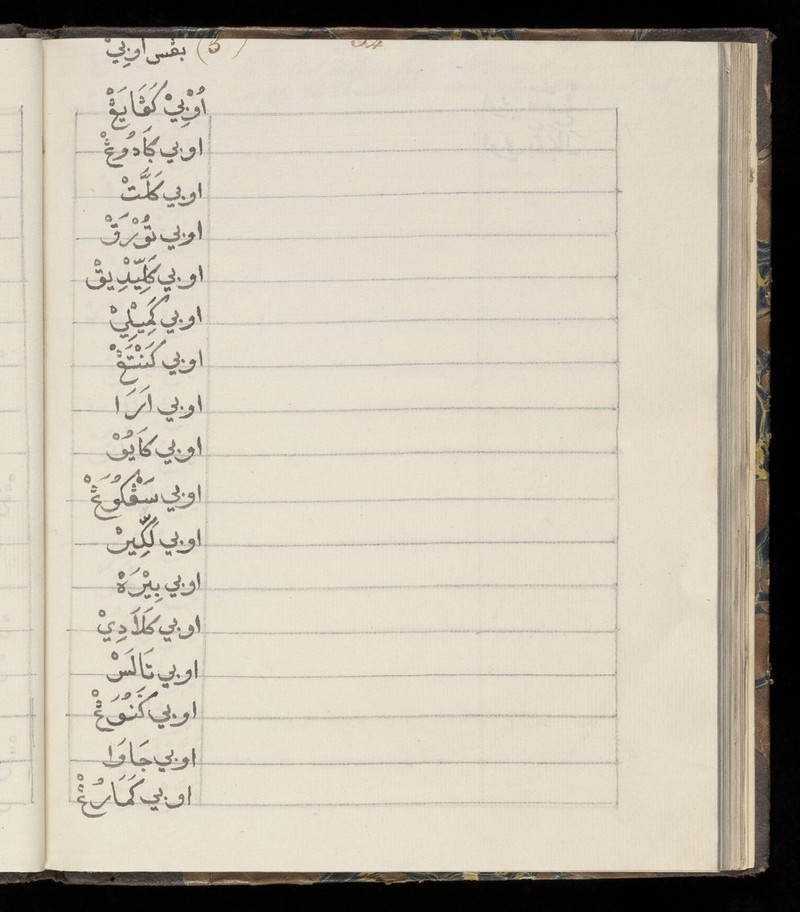 بڠس اوبي (5)
اُوْبِيْ كَڤَايَڠْ
اوبي ݢَادُوڠْ
اوبي كَلَّتْ
اوبي تُوْرَقْ
اوبي كَلِيْدِيقْ
اوبي كَمِيْلِيْ
اوبي كَنْتَڠْ
اوبي اَرَا
اوبي كَايُوْ
اوبي سَڠْكُوَڠْ
اوبي لَݢِّيْرْ
اوبي بِيْرَهْ
اوبي كَلَادِيْ
اوبي تَالَسْ
اوبي كَنُوَڠْ
اوبي جَاوَا
اوبي كَمَارُڠْ